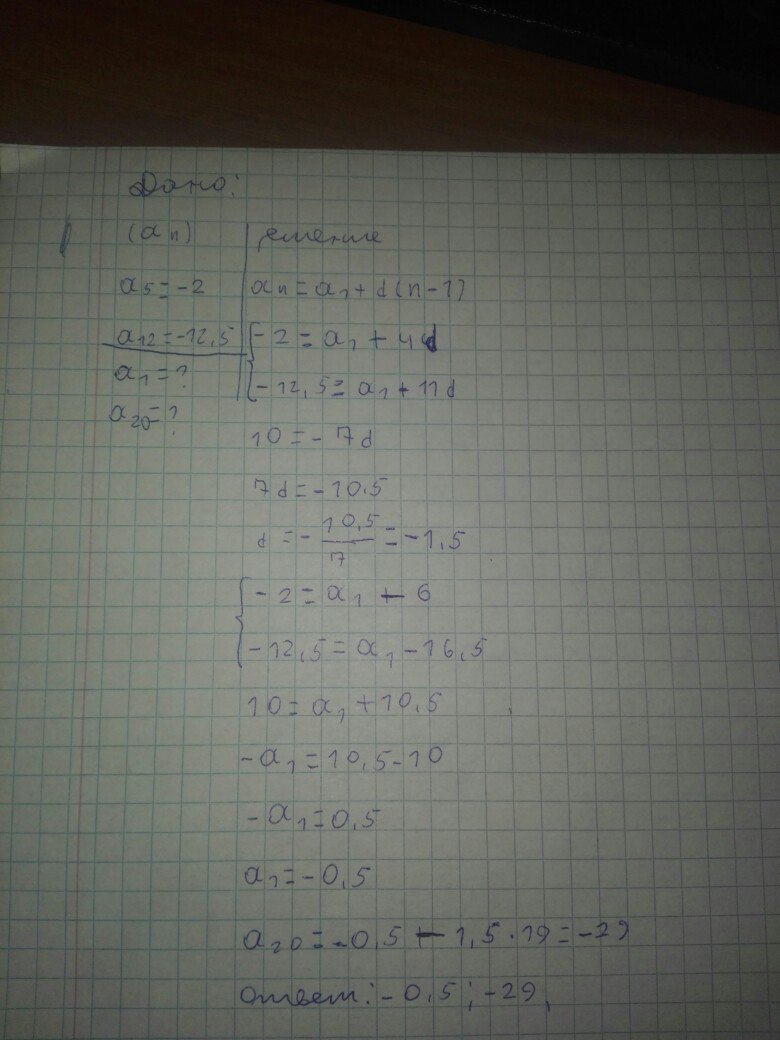 Дано:
(an)
a5=-2
a12=-12,5
a1=?
a20=?
решение
an=a1+d(n-1)
-2=a1+4d
-12,5=a1+11d
10=-7d
7d=-10.5
d=-10,5/7=-1,5
-2=a1-6
-12,5=a1-16,5
10=a1+10,5
-a1=10,5-10
-a1=0,5
a1=-0,5
a20=-0,5-1,5·19=-29
ответ:-0,5;-29,